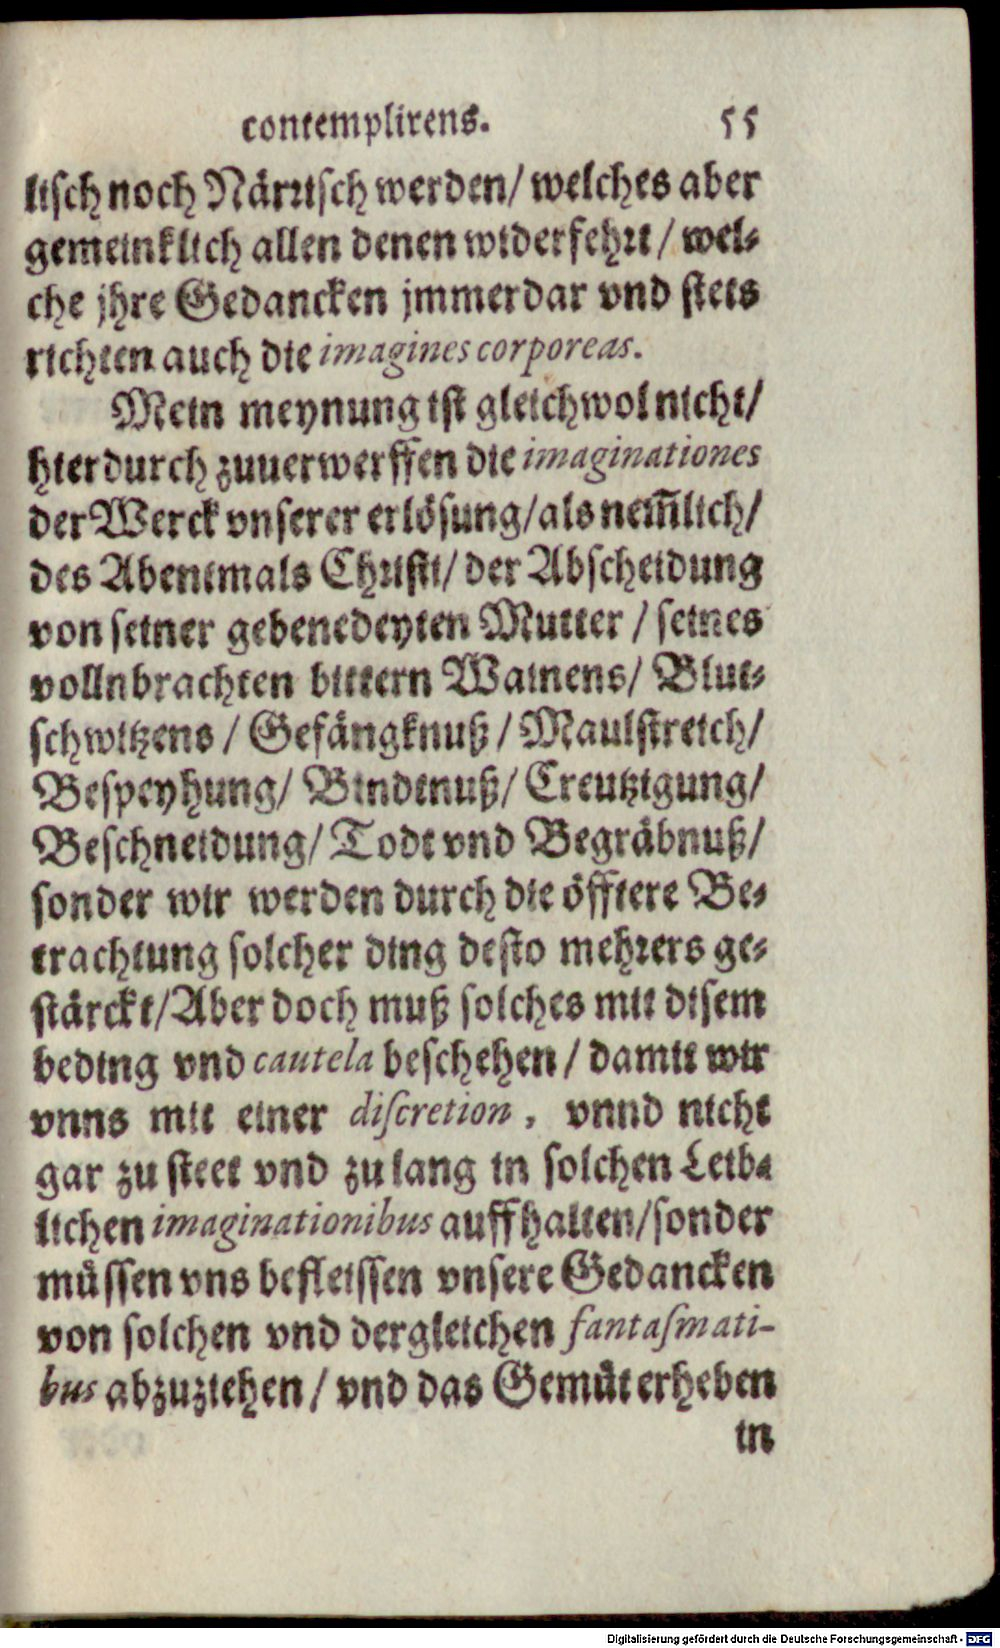 contemplirens. 55
lisch noch Närrisch werden/ welches aber
gemeinklich allen denen widerfehrt / wel-
che jhre Gedancken jmmerdar vnd stets
richten auch die imagines corporeas.
Mein meynung ist gleichwol nicht/
hierdurch zuuerwerffen die imaginationes
der Werck vnserer erlösung/als nem̃lich/
des Abentmals Christi/ der Abscheidung
von seiner gebenedeyten Mutter / seines
vollnbrachten bittern Wainens/ Blut-
schwitzens / Gefängknuß / Maulstreich/
Bespeyhung/ Bindtnuß/ Creutzigung/
Beschneidung/ Todt vnd Begräbnuß/
sonder wir werden durch die öfftere Be-
trachtung solcher ding desto mehrers ge-
stärckt/Aber doch muß solches mit disem
beding vnd cautela beschehen / damit wir
vnns mit einer discretion , vnnd nicht
gar zu steet vnd zu lang in solchen Leib-
lichen imaginationibus auffhalten/sonder
müssen vns befleissen vnsere Gedancken
von solchen vnd dergleichen fantasmati-
bus abzuziehen / vnd das Gemüt erheben
in
Digitalisierung gefördert durch die Deutsche Forschungsgemeinschaft - DFG